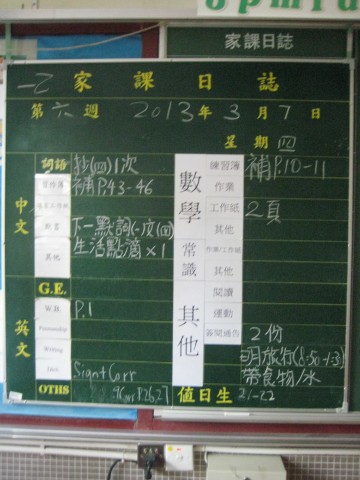 家課日誌
一乙 家課日誌
第六週 2013年3月7日
星期四
中文
詞語 抄(四)1次
補P.43-46
默書
其他
生活點滴×1
G.E.
英文
W.B. P.1
Penmanship
Writing
Dict
Sign+Corr
OTHS
數學
練習簿 補P.10-11
作業
工作紙 2頁
其他
常識
作業/工作紙
其他
其他
閱讀
運動
簽閱通告 2份
明旅行(8:50-1:3)
帶食物/水
值日生 21-22